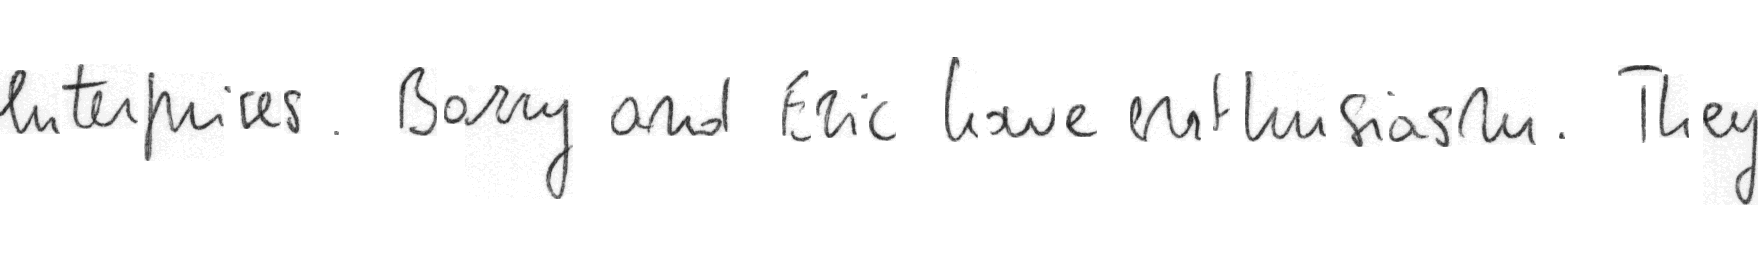 Enterprises. Barry and Eric have enthusiasm. They